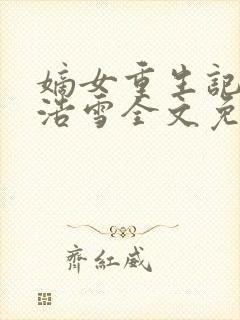 嫡女重生記
浩雪全文免
齊紅威